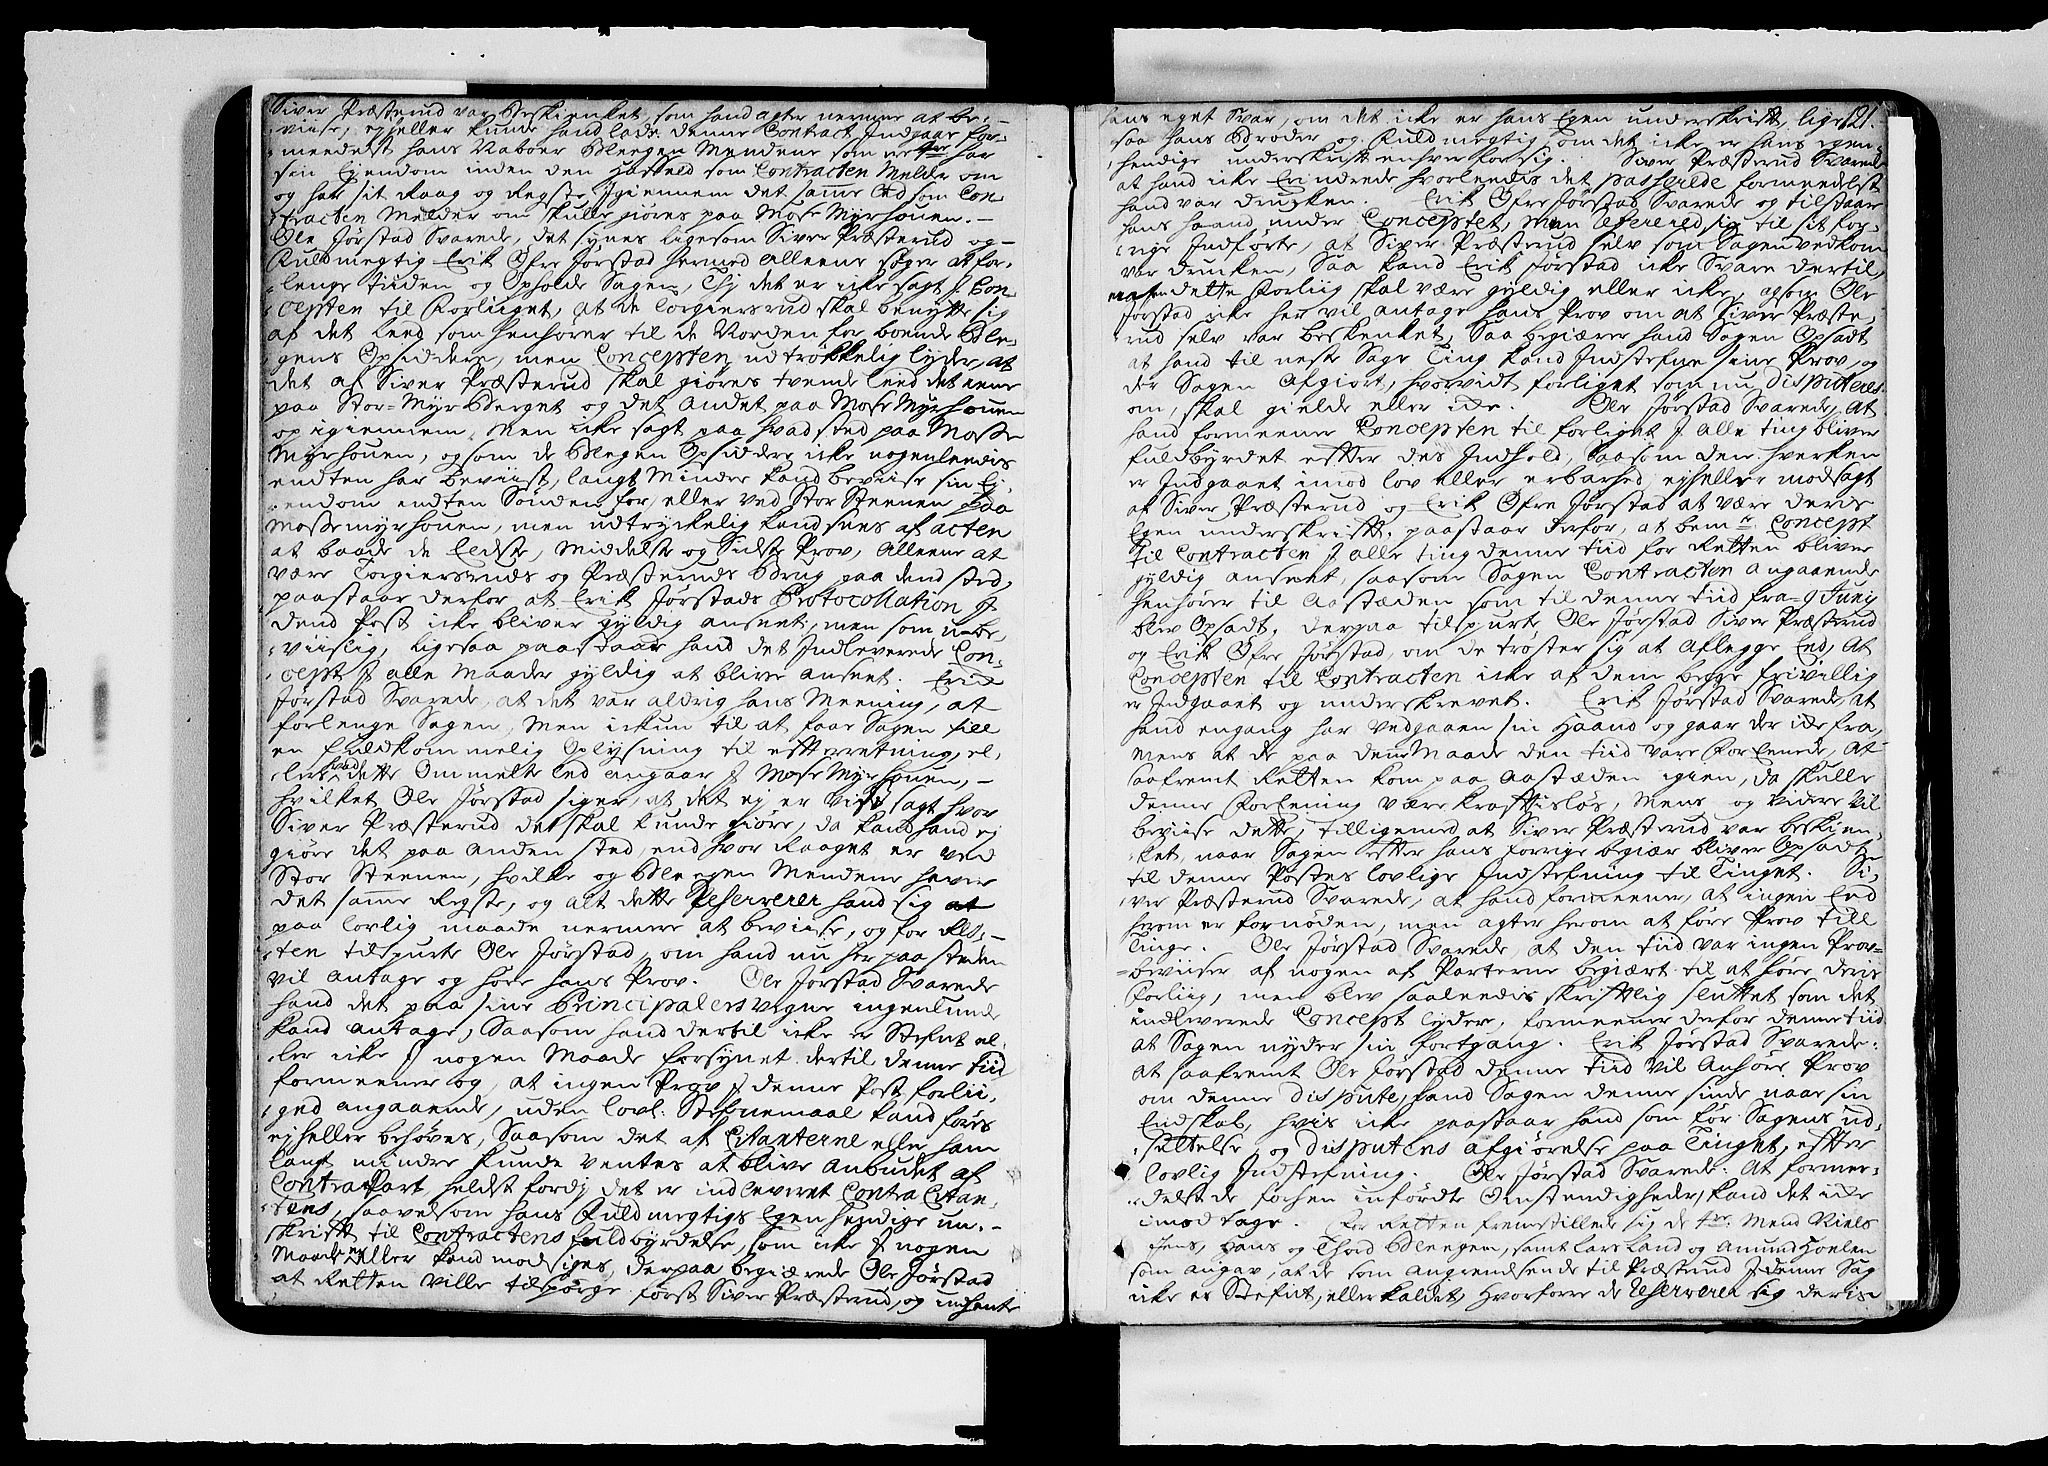 Siver Præsterud var Beskienket, som hand agter nermer at be-
viise, ej heller kunde hand lade denne Contract Indgaae for-
meedelst hans Naboer Bleegen Mendene som

sin Ejendom inden den Hasteld som Contracten Melder om
og har sit Raag og Regste Igiennem det samme sted som Con-
tracten Melder om skulle giøres paa Mose Myrhouen.-
Ole Jørstad Svarede, det synes ligesom Siver Præsterud og
Fuldmegtig Erik Øfre Jørstad hermed alleene søger at for-
lenge tiiden og Opholde Sagen, Thj det er icke sagt J Con-
cepten til Forliiget, at de Torgiersrud skal benytte sig
af det Leed som henhører til de Norden for boende Ble-
gens Opsiddere, men Concepten udtrøkkelig lyder, at
det af Siver Præsterud skal giøres tvende leed det eene
paa Stor-Myr Berget og det andet paa Mose Myrhouen
op igiennem, Men icke sagt paa hvad sted paa Mosse
Myrhouen, og som de Blegen Opsiddere icke nogenleedis
endten har beviist, langt Minder kand beviise sin Ej-
endom endten Sønden for eller ved Stor Steenen paa
Mossemyrhouen, men udtryckelig kend sees af acten
at baade de Eedste, Middelste og Sidste Prov, Alleene at
være Torgiersruds og Præsteruds Brug paa dend sted,
paastaar derfor at Erik Jørstads Protocollation J
dend Post icke bliver gyldig anseet, men som u-be-
viislig, ligesaa paastaar hand det Indleverede Con-
cept J alle Maader gyldig at blive anseet. Erik
Jørstad Svarede, at det var aldrig hans Meening, at
forlenge Sagen, Men ickun til at faae Sagen till
en fuldkommelig Oplysning til efterretning, el-
ler hvad dette Ommelte Led angaar J Mose Myrhouen,-
hvilket Ole Jørstad siger, at det ej er vist sagt hvor
Siver Præsterud det skal kunde giøre, da kand hand ej
giøre det paa anden sted, end hvor Raaget er ved
Stor Steenen, hvilke og Bleegen Mendene haver
det samme Regste, og alt dette Reserverer hand sig at
paa lovlig maade nermere at beviise, og for Ret-
ten tilspurte Ole Jørstad, om hand nu her paa steden
vil antage og høre hans Prov. Ole Jørstad Svarede
hand det paa sine Principalers vegne ingenlunde
kand antage, Saasom hand dertil icke er Stefnt el-
ler icke J nogen Maade forsynet dertil denne tiid
formeener og, at ingen Prov J denne Post forlii-
ged angaaende, uden lovl: Stefnemaal kand føres
ej heller behøves, Saasom det af Citanterne eller ham
langt mindre kunde ventes at blive anbudet af
ContraPart, heldst fordj det er indleveret Contra Citan-
tens, saavelsom hans Fuldmegtigs Egenhendige un-
skrift til Contractens fuldbyrdelse, som icke J nogen
Maade er eller kand modsiges, derpaa begiærede Ole Jørstad
at Retten ville tilspørge først Siver Præsterud, og indhente
hans eget Svar, om det icke er hans Egen underskrift, lige 121.
saa hans Broder og Fuldmegtig om det icke er hans egen-
hendige underskrift enhver for sig. Siver Præsterud Svarede
at hand icke Erindrede hvorleedis det passerede formeedelst
hand var drucken. Erik Øfre Jørstad Svarede og tilstaaer
hans haand under Conceptet, Men refererede sig til sit for-
rige Indførte, at Siver Præsterud selv som Sagen vedkom
var drucken, Saa kand Erik Jørstad icke Svare dertil,
enten dette Forliig skal være gyldig eller icke, og som Ole
Jørstad icke her vil antage hans Prov om at Siver Præste-
rud selv var beskenket, Saa begiærer hand Sagen Opsadt
at hand til neste Sage Ting kand Indstefne sine Prov, og
der Sagen afgiort, hvorvidt forliget som nu disputeres
om, skal gielde eller icke. Ole Jørstad Svarede, At
hand formeener Concepten til forliget J alle ting bliver
fuldbyrdet efter des Indhold, Saasom den hverken
er Indgaaet imod lov eller erbarhed, ej heller modsagt
af Siver Præsterud og Erik Øfre Jørstad at være deres
Egen underskrift, paastaar derfor, at bem.te Concept
til Contracten J alle ting denne tiid for Retten bliver
gyldig anseet, saasom Sagen Contracten angaaende
henhører til Aastæden som til denne tiid fra 9 Junj
blev Opsadt, derpaa tilspurte Ole Jørstad Siver Præsterud
og Erik Øfre Jørstad, om de trøster sig at Aflegge Eed, At
Concepten til Contracten icke af dem begge frivillig
er Indgaaet og underskrevet. Erik Jørstad Svarede, at
hand engang har vedgaaen sin Haand og gaar der icke fra,
Mens at de paa denne Maade den tiid vare forleenede, At
saafremt Retten kom paa Aastæden igien, da skulle
denne Forlening være kraftisløs, Mens og videre vil
beviise dette, tilligemed at Siver Præsterud var beskien-
ket, naar Sagen efter hans forrige begiær bliver Opsadt
til denne Postes lovlige Indstefning til Tinget. Si-
ver Præsterud Svarede, at hand formeener, at ingen Eed
herom er fornøden, men agter herom at føre Prov till
Tinge. Ole Jørstad Svarede, at den tiid var ingen Prov-
beviiser af nogen af Parterne begiært til at føre deris
Forliig, men blev saaleedis skriftlig sluttet som det
indleverede Concept lyder, formeener derfor denne tiid
at Sagen nyder sin fortgang. Erik Jørstad Svarede:
At saafremt Ole Jørstad denne tiid vil Anhøre Prov
om denne dispute, hand Sagen denne sinde naar sin
Endskab, hvis icke paastaar hand som før Sagens ud-
settelse og disputens afgiørelse paa Tinget, efter
lovlig Indstefning. Ole Jørstad Svarede: At formee-
delst de forhen indførte Omstendigheder, kand det icke
imodtage. For Retten fremstillede sig de Mend Niels
Jens, Hans og Thord Bleegen, samt Lars Lund og Amund Hoelen
som angav, at de som angrendsende til Præsterud J denne Sag
icke er Stefnt, eller kaldet, hvorfore de Reserverer sig deris